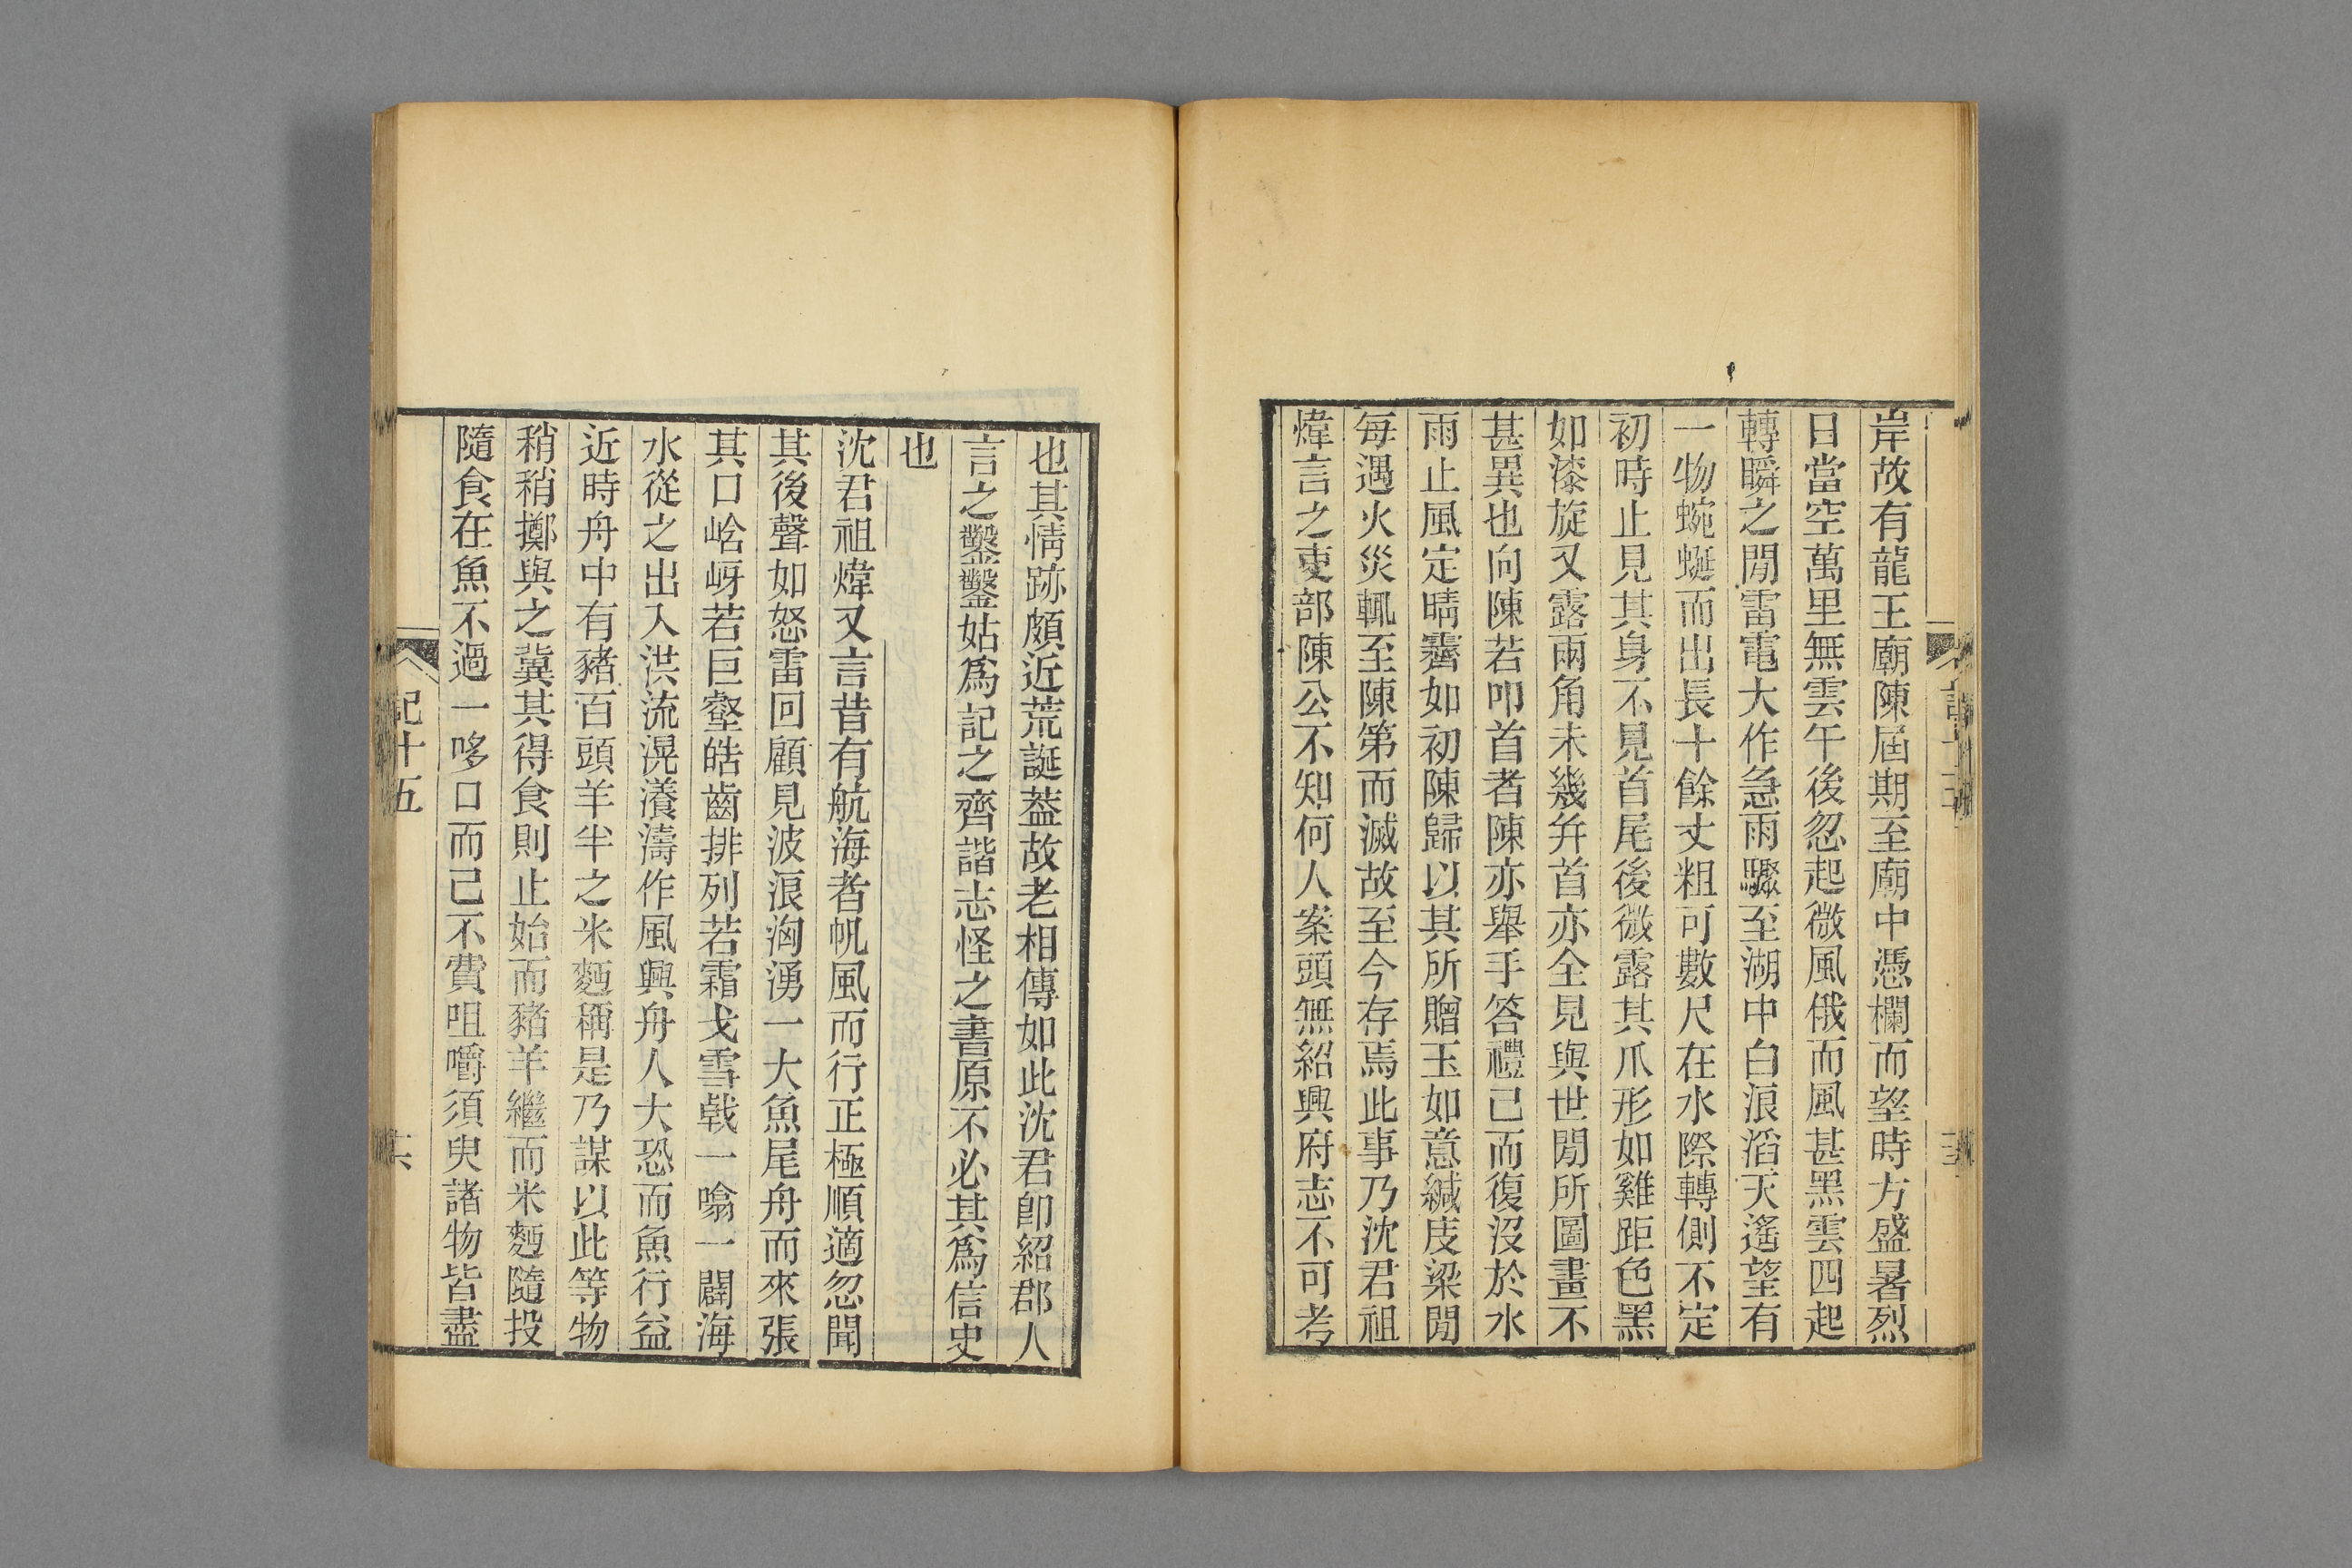 岸故有龍王廟陳屆期至廟中憑欄而望時方盛暑烈
日當空萬里無雲午後忽起微風俄而風甚黑雲四起
轉瞬之閒雷電大作急雨驟至湖中白浪滔天遙望有
一物蜿蜒而出長十餘丈粗可數尺在水際轉側不定
初時止見其身不見首尾後微露其爪形如雞距色黑
如漆旋又露兩角未幾幷首亦全見與世閒所圖畫不
甚異也向陳若叩首者陳亦舉手答禮已而復沒於水
雨止風定晴霽如初陳歸以其所贈玉如意緘庋梁閒
每遇火災輒至陳第而滅故至今存焉此事乃沈君祖
煒言之吏部陳公不知何人案頭無紹興府志不可考
也其情跡頗近荒誕葢故老相傳如此沈君卽紹郡人
言之鑿鑿姑爲記之齊諧志怪之書原不必其爲信史
也
沈君祖煒又言昔有航海者帆風而行正極順適忽聞
其後聲如怒雷回顧見波浪洶湧一大魚尾舟而來張
其口峆岈若巨壑皓齒排列若霜戈雪戟一噏一闢海
水從之出入洪流滉瀁濤作風興舟人大恐而魚行益
近時舟中有豬百頭羊半之米麪稱是乃謀以此等物
稍稍擲與之冀其得食則止始而豬羊繼而米麪隨投
隨食在魚不過一哆口而已不費咀嚼須臾諸物皆盡
記十五